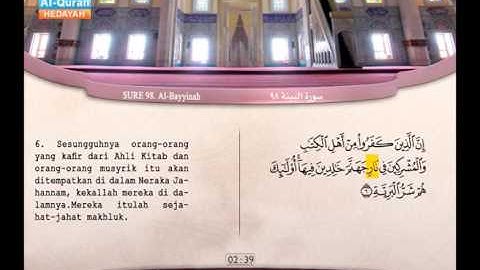 Al-Quran
HEDAYAH
SURE 98. Al-Bayyinah
سورة البينة ٩٨
6. Sesungguhnya orang-orang
yang kafir dari Ahli Kitab dan
orang-orang musyrik itu akan
ditempatkan di dalam Neraka Ja-
hannam, kekallah mereka di da-
lamnya.Mereka itulah seja-
hat-jahat makhluk.
إِنَّ الَّذِينَ كَفَرُوا مِنْ أَهْلِ الْكِتَابِ
وَالْمُشْرِكِينَ فِي نَارِ جَهَنَّمَ خَالِدِينَ فِيهَا أُولَٰئِكَ
هُمْ شَرُّ الْبَرِيَّةِ ٦
02:39